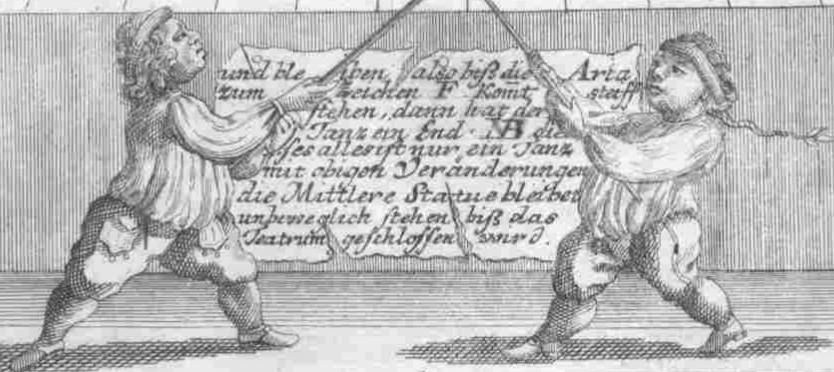 und ble iben, also biß die Aria
zum zeichen F. Kom̅t steiff
stehen, dann hat der
Tanz ein End. NB die
ses alles ist nur ein Tanz
mit obigen Veränderungen
die Mittlere Statue bleibet
unbeweglich stehen biß das
Teatrum geschlossen wird.